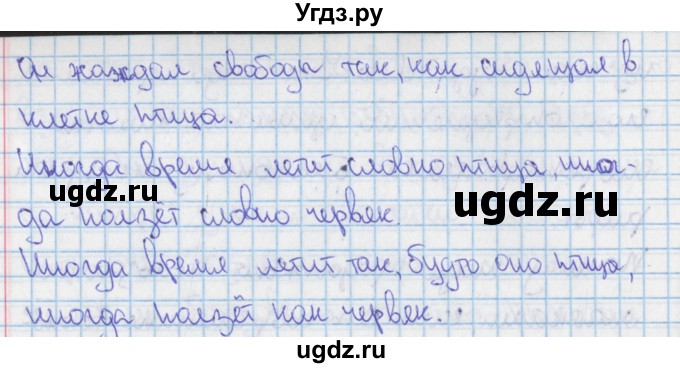 Угдз.ру
Он жаждал свободы так, как сидящая в
клетке птица.
Иногда время летит словно птица, иног-
ugdz.ru
ugdz.ru
да ползёт словно червяк.
Иногда время летит так, будто оно птица,
иногда ползёт как червяк.
ugdz.ru
ugdz.ru